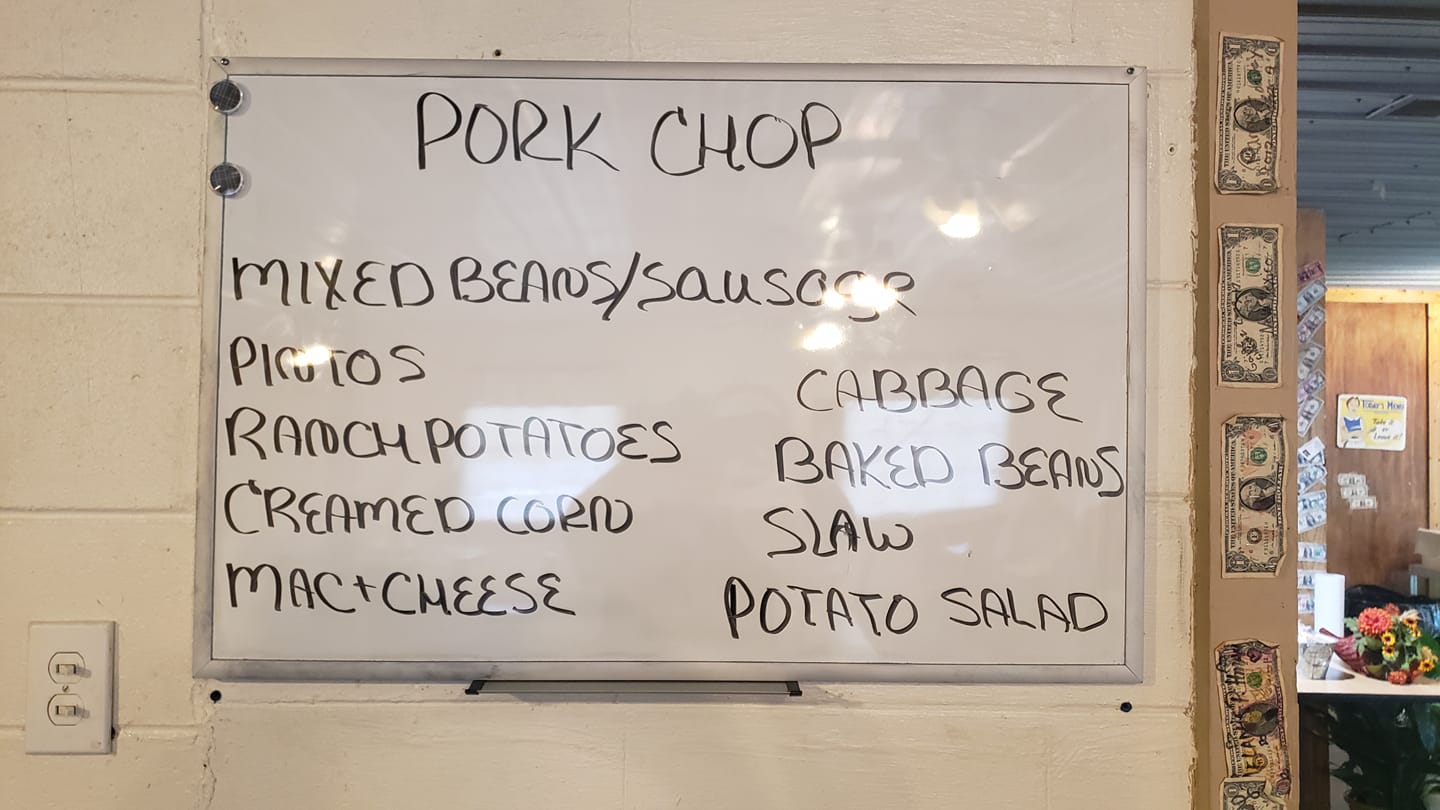 PORK CHOP
MIXED BEANS/SAUSAGE
PINTOS
RANCH POTATOES
CREAMED CORN
MAC+CHEESE
CABBAGE
BAKED BEANS
SLAW
POTATO SALAD
TODAY'S MENU
Take it
or
Leave it!